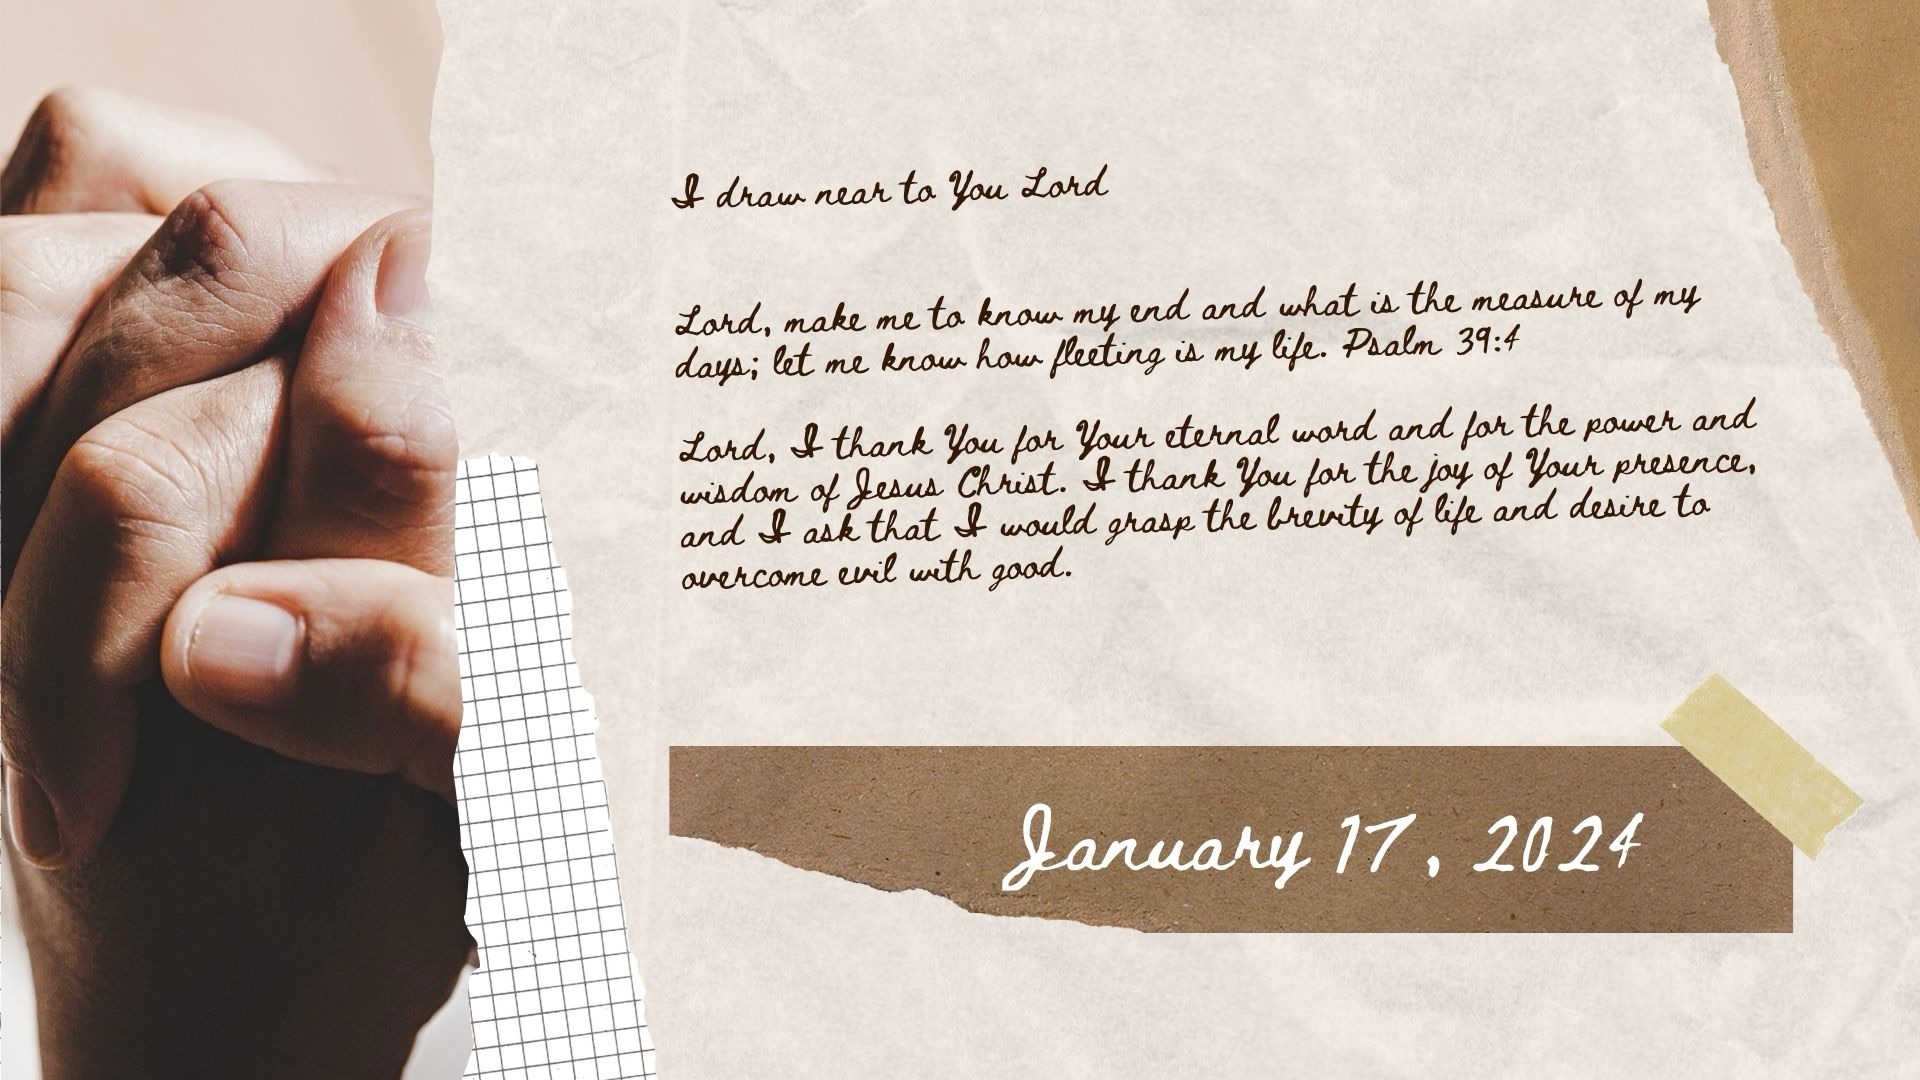 I draw near to You Lord
Lord, make me to know my end and what is the measure of my
days; let me know how fleeting is my life. Psalm 39:4
Lord, I thank You for Your eternal word and for the power and
wisdom of Jesus Christ. I thank You for the joy of Your presence,
and I ask that I would grasp the brevity of life and desire to
overcome evil with good.
January 17, 2024